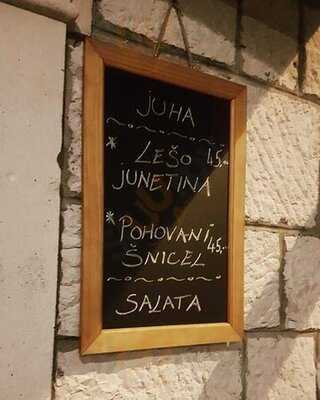 JUHA
* LEŠO 45,-
JUNETINA
* POHOVANI 45,-
ŠNICEL
SALATA